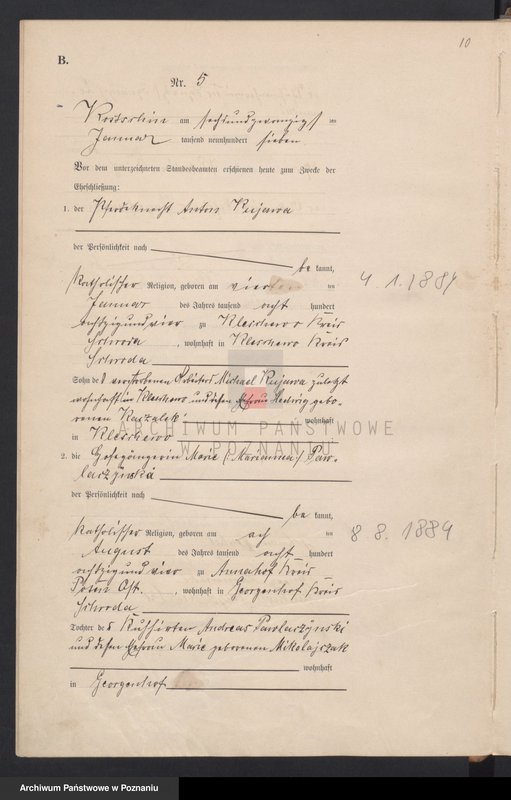 10
B.
Nr. 5
Kostschin am sechsundzwanzigsten
Januar tausend neunhundert sieben
Vor dem unterzeichneten Standesbeamten erschienen heute zum Zwecke der
Eheschließung:
1. der Pferdeknecht Anton Kujawa
der Persönlichkeit nach
be kannt,
katholischer Religion, geboren am vierten
4 1. 1884
Januar des Jahres tausend acht hundert
achtzig und vier zu Kleschewo Kreis
Schroda, wohnhaft in Kleschewo Kreis
Schroda
Sohn des verstorbenen Arbeiters Michael Kujawa zuletzt
wohnhaft in Kleschewo und dessen Ehefrau Hedwig gebo-
renen
wohnhaft
in Kleschewo
2. die Marie (Marianna) Paw-
laczynski
der Persönlichkeit nach
be kannt,
katholischer Religion, geboren am ach ten
8 8. 1884
August des Jahres tausend acht hundert
achtzig und vier zu Annahof Kreis
Posen Ost., wohnhaft in Georgenhof Kreis
Schroda
Tochter des Kuhhirten Andreas Pawlaczynski
und dessen Ehefrau Marie geborenen Mikolajczak
wohnhaft
in Georgenhof
ARCHIWUM PAŃSTWOWE
W POZNANIU
Archiwum Państwowe w Poznaniu